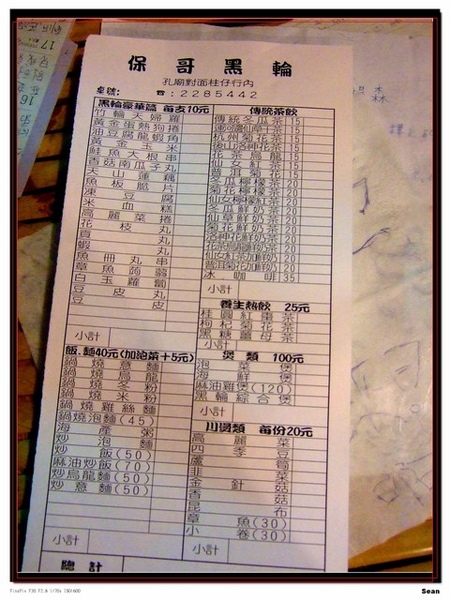 保哥黑輪
孔廟對面柱仔行內
桌號: ☎:2285442
黑輪豪華篇 每支10元
竹輪天婦羅
黃金蛋熱狗捲
油豆腐龍蝦角
黃金玉米
鮭魚大根串
香菇南瓜子丸
天山蓮藕
魚板脆片
凍豆腐
米血糕
高麗菜捲
花枝丸
貢丸
蝦丸
魚冊丸串
章魚蒟蒻
白玉蘿蔔
豆皮丸
豆皮
小計
飯、麵40元(加泡菜+5元)
鍋燒意麵
鍋燒烏龍
鍋燒冬粉
鍋燒米粉
鍋燒雞絲麵
鍋燒泡麵(45)
海產粥
炒泡麵
炒飯(50)
麻油炒飯(70)
炒烏龍麵(50)
炒意麵(50)
小計
總計
傳統茶飲
傳統冬瓜茶 15
蓮頭仙草干茶 15
杭州菊花茶 15
後山洛神花茶 15
花茶烏龍 15
仙女紅茶 15
普洱菊花 15
冬瓜檸檬茶 20
菊花檸檬茶 20
仙女檸檬紅茶 20
冬瓜鮮奶茶 20
仙草鮮奶茶 20
菊花鮮奶茶 20
洛神花鮮奶茶 20
花茶烏龍鮮奶 20
仙女紅茶加鮮奶 20
普洱菊花加鮮奶 20
冰咖啡 35
小計
養生熱飲 25元
桂圓紅棗茶
枸杞菊花茶
黑糖薑母茶
小計
煲類 100元
泡菜煲
海鮮煲
麻油雞煲(120)
黑輪綜合煲
小計
川燙類 每份20元
高麗菜
四季豆
蘆筍
韭菜
金針菇
香菇
昆布
章魚(30)
小卷(30)
小計
17
16
FinePix F30 F2.8 1/70s ISO1600
Sean